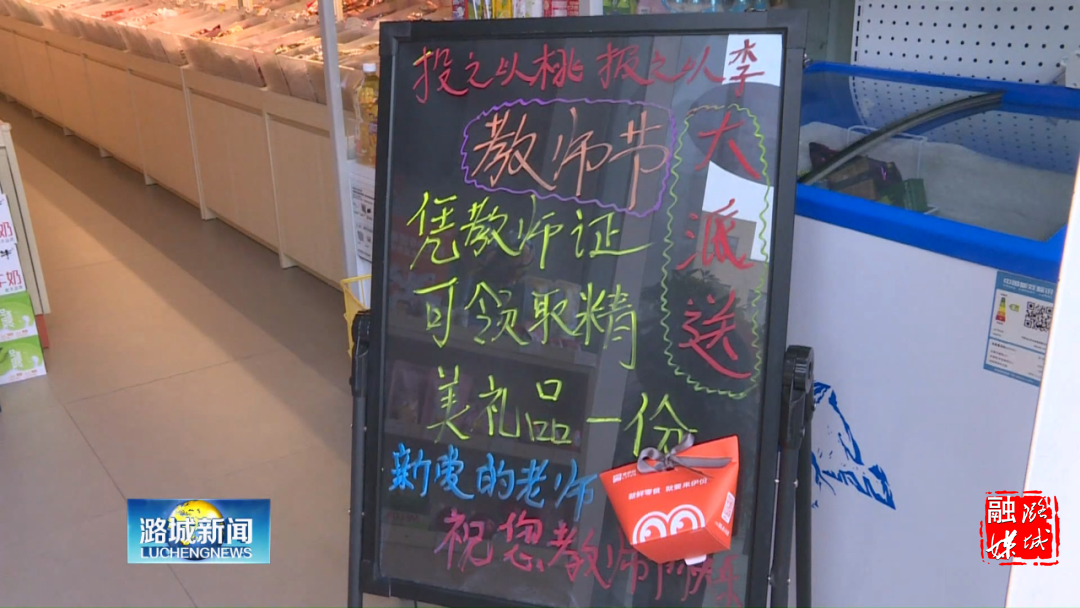 投之以桃 报之以李
教师节
大派送
凭教师证
可领取精
美礼品一份
亲爱的老师
祝您教师节快乐
潞城新闻
LUCHENGNEWS
融潞
媒城
奶
牛奶